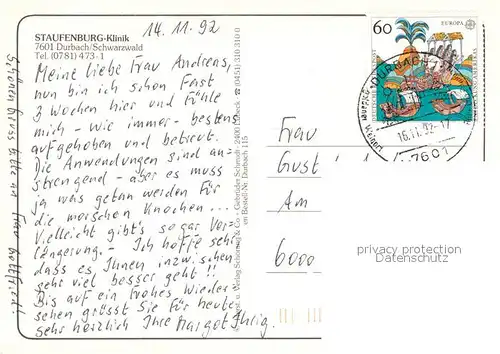 STAUFENBURG-Klinik
7601 Durbach/Schwarzwald
Tel. (0781) 473-1
14.11.92
Meine liebe Frau Andreas,
nun bin ich schon fast
3 Wochen hier und fühle
mich - wie immer - bestens
aufgehoben und betreut.
Die Anwendungen sind an-
strengend - aber es muss
ja was getan werden für
die morschen Knochen...
Vielleicht gibt's sogar Ver-
längerung. - Ich hoffe sehr
dass es Ihnen inzwischen
sehr viel besser geht!!
Bis auf ein frohes Wieder-
sehen grüsst Sie für heute
sehr herzlich Ihre Margot
Schönen Gruss bitte an Frau Gottfried!
Verlag Schöning & Co + Gebrüder Schmidt 2400 Lübeck ☎ (0451) 310 310
Bestell-Nr. Durbach 115
60
EUROPA
DURBACH
16.11.92-17
7601
Frau
Gust
Am
6000
privacy protection
Datenschutz